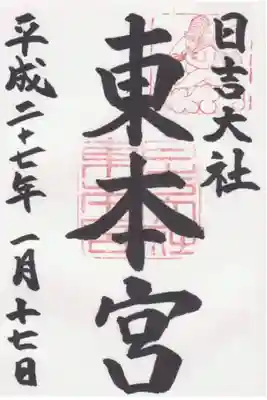 日吉大社
東本宮
平成二十七年 一月十七日